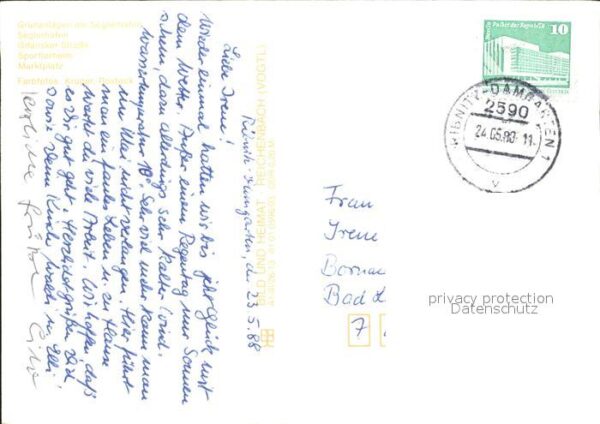 Grünanlagen am Seglerhafen
Seglerhafen
Gdansker Straße
Sportlerheim
Marktplatz
Farbfotos: Krüger, Rostock
BILD UND HEIMAT REICHENBACH (VOGTL)
Ribnitz-Damgarten, den 23.5.88
Liebe Irene!
Wieder einmal hatten wir bis jetzt Glück mit
dem Wetter. Außer einem Regentag nur Sonnen
schein, dazu allerdings sehr kalter Wind.
Wassertemperatur 10°. Sehr viel mehr kann man
im Mai nicht verlangen. Hier führt
man ein faules Leben u. zu Hause
wartet die viele Arbeit. Wir hoffen, daß
es Dir gut geht. Herzlichst grüßen Dich
sowie Deine Kinder
10
RIBNITZ-DAMGARTEN 1
2590
24.05.88-11
v
Frau
Irene
Borna
Bad L
7
privacy protection
Datenschutz